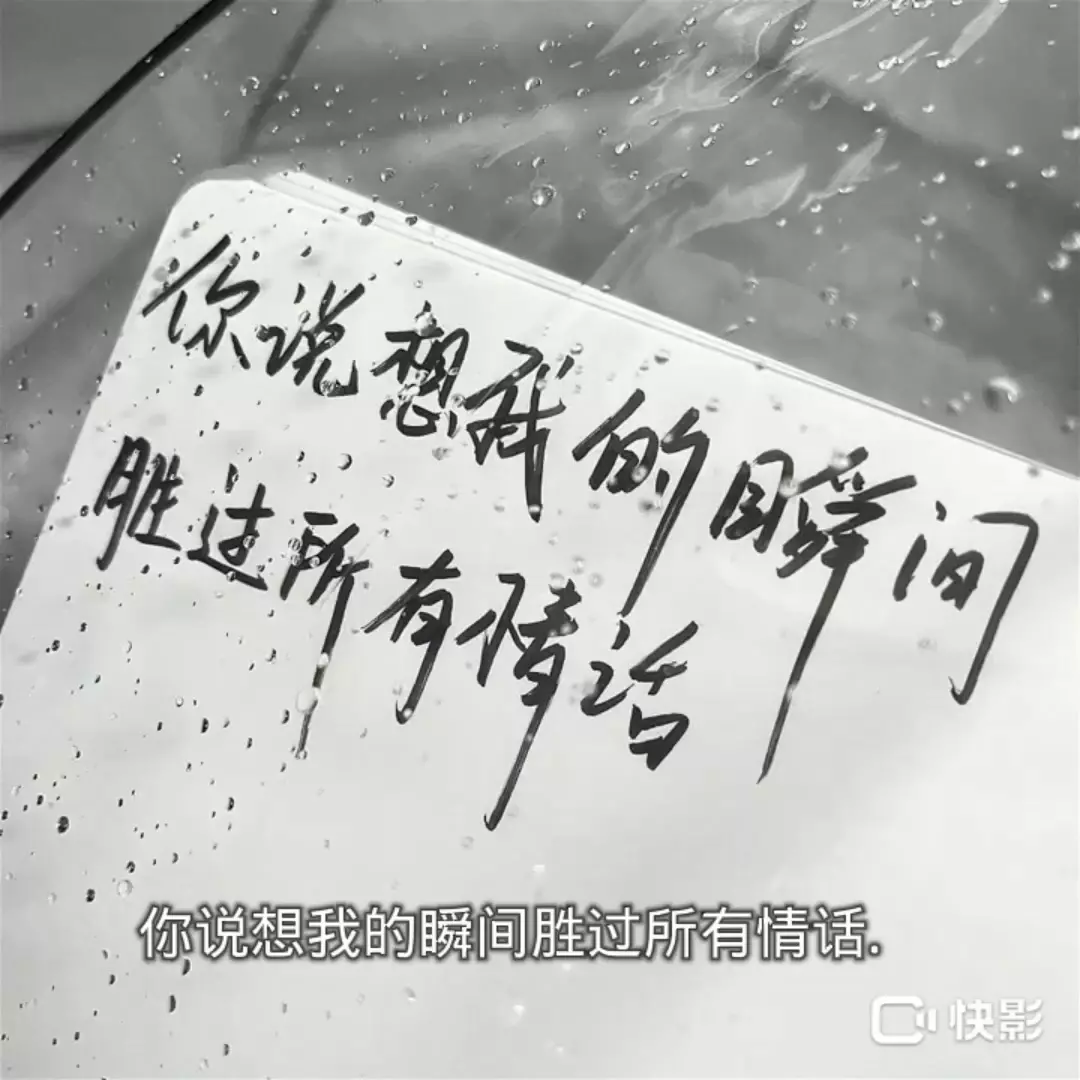 你说想我的瞬间
胜过所有情话
你说想我的瞬间胜过所有情话.
快影